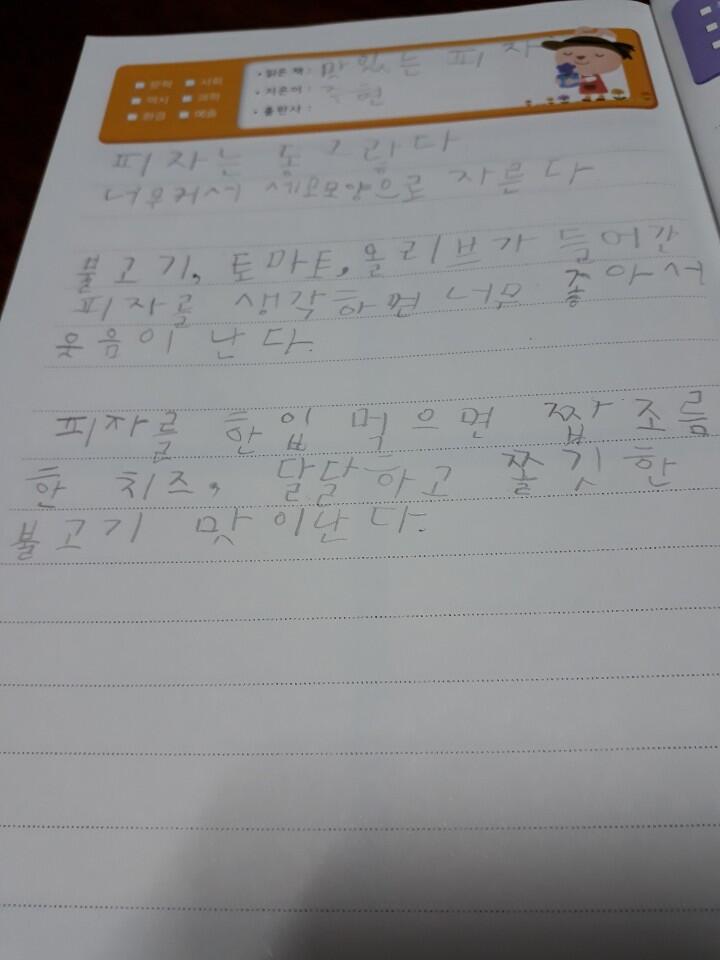 문학 사회
역사 과학
환경 예술
• 읽은 책 : 맛있는 피자
• 지은이 : 주현
• 출판사 :
피자는 동그랗다
너무커서 세모모양으로 자른다
불고기, 토마토, 올리브가 들어간
피자를 생각하면 너무 좋아서
웃음이 난다.
피자를 한입 먹으면 짭조름
한 치즈, 달달하고 쫄깃한
불고기 맛이난다.